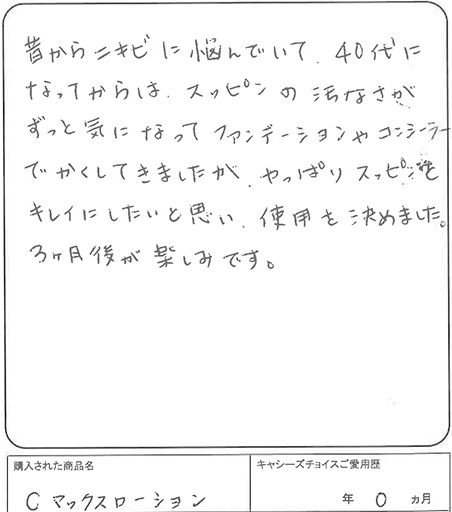 昔からニキビに悩んでいて、40代に
なってからは、スッピンの汚なさが
ずっと気になってファンデーションやコンシーラー
でかくしてきましたが、やっぱりスッピンを
キレイにしたいと思い、使用を決めました。
3ヶ月後が楽しみです。
購入された商品名
キャシーズチョイスご愛用歴
Cマックスローション
年 0 ヵ月